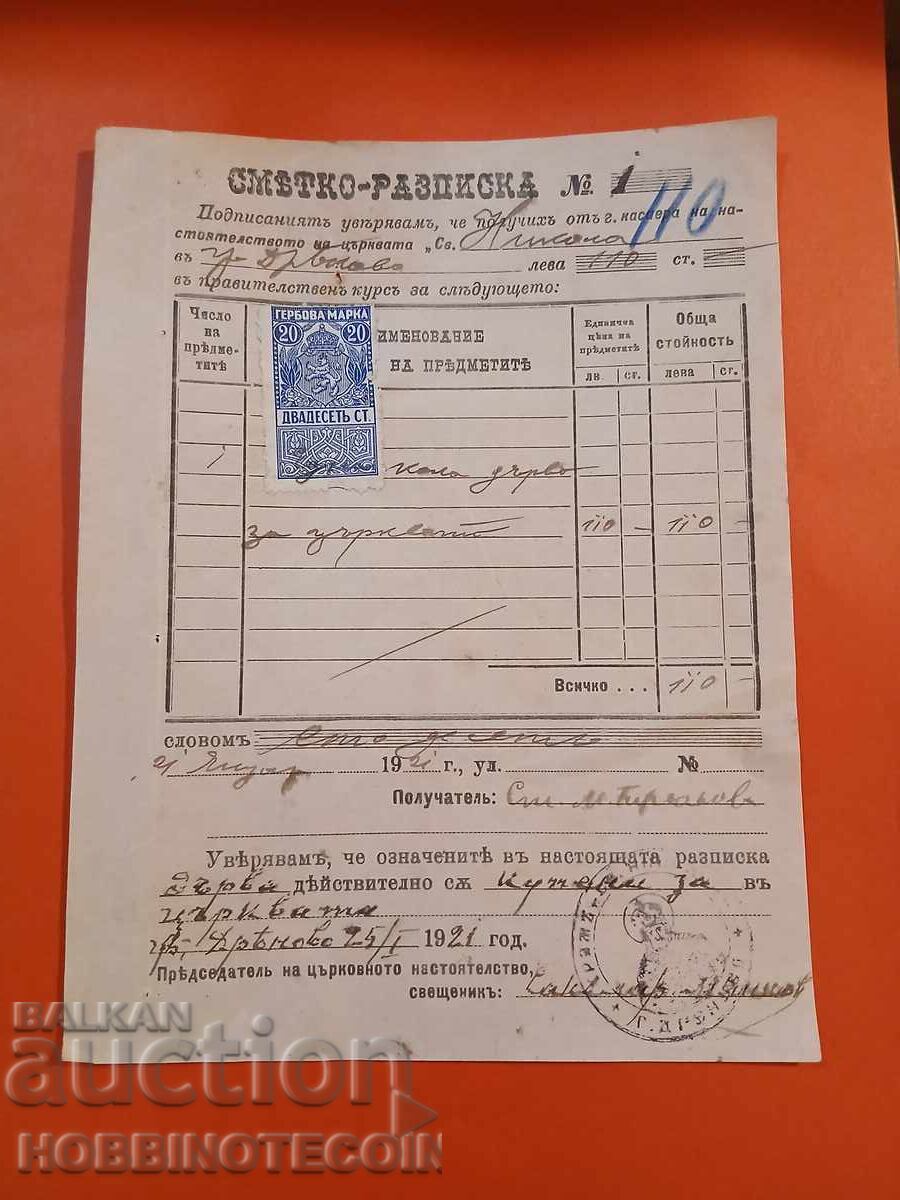 СМѢТКО-РАЗПИСКА № 1
110
Подписаниятъ увѣрявамъ, че получихъ отъ г. касиера на на-
стоятелството на църквата „Св. Никола
въ гр. Дрѣново лева 110 ст. —
въ правителственъ курсъ за слѣдующето:
Число на прѣдметитѣ
ИМЕНОВАНИЕ НА ПРѢДМЕТИТѢ
Единична цѣна на прѣдметитѣ
Обща стойность
лв. ст. лева ст.
ГЕРБОВА МАРКА
20 20
ДВАДЕСЕТЬ СТ.
1 кола дърва
за църквата 110 — 110 —
Всичко . . . 110 —
словомъ Сто десеть
21 Януар 1921 г., ул. №
Получатель: Ст.
Увѣрявамъ, че означенитѣ въ настоящата разписка
Дърва дѣйствително сѫ купени за въ
църквата
гр. Дрѣново 25/I 1921 год.
Прѣдседатель на църковното настоятелство,
свещеникъ:
BALKAN
auction
HOBBINOTECOIN